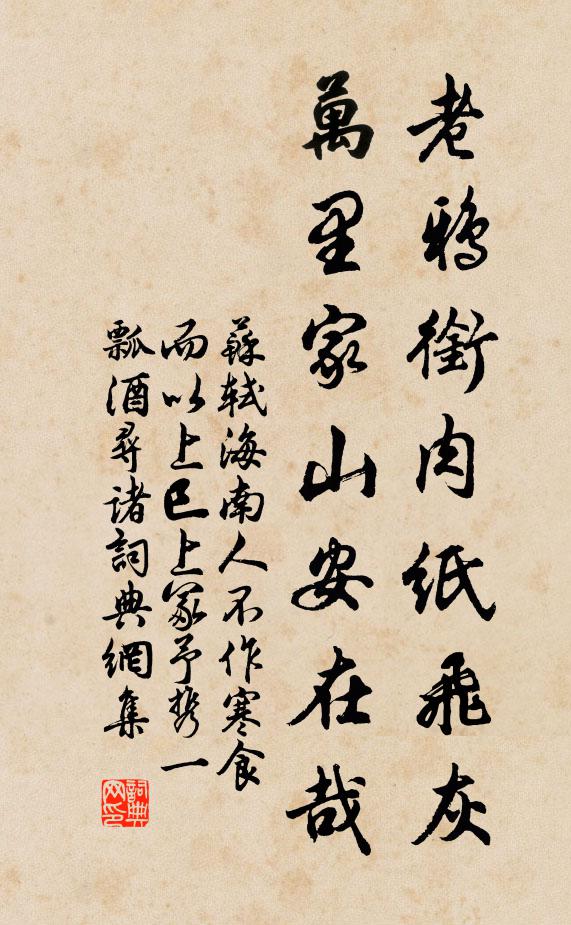 老鴉銜肉紙飛灰
萬里家山安在哉
蘇軾海南人不作寒食
而以上巳上冢予携一
瓢酒尋諸詞典網集
詞典网印